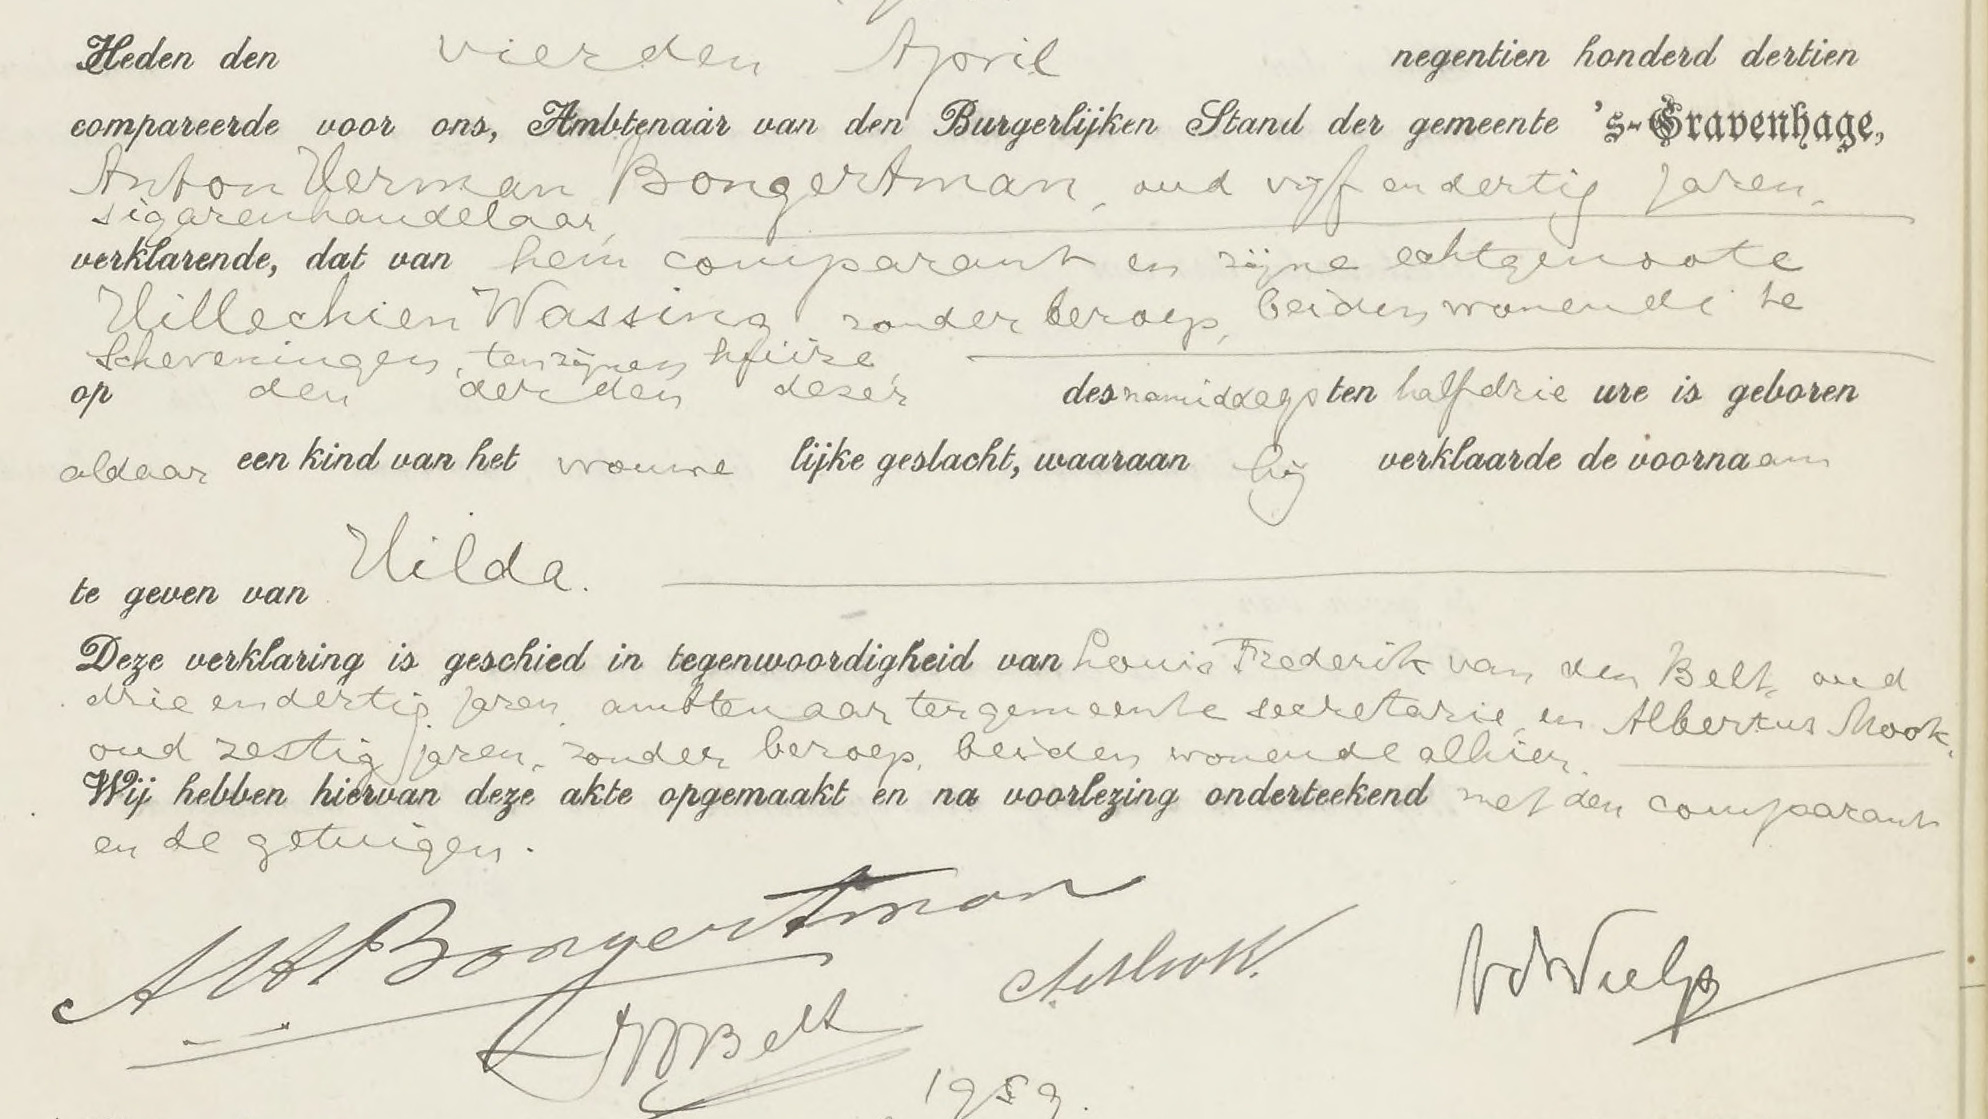 Heden den vierden April negentien honderd dertien
compareerde voor ons, Ambtenaar van den Burgerlijken Stand der gemeente 's-Gravenhage,
Anton Herman Bongertman, oud vijf en dertig jaren,
sigarenhandelaar,
verklarende, dat van hem comparant en zijne echtgenoote
Hillechien Wassing, zonder beroep, beiden wonende te
Scheveningen, ten zijnen huize,
op den derden dezer des namiddags ten half drie ure is geboren
aldaar een kind van het vrouwelijke geslacht, waaraan hij verklaarde de voornaam
te geven van Hilda.
Deze verklaring is geschied in tegenwoordigheid van Louis Frederik van den Belt, oud
drie en dertig jaren, ambtenaar ter gemeente secretarie, en Albertus Mook,
oud zestig jaren, zonder beroep, beiden wonende alhier.
Wij hebben hiervan deze akte opgemaakt en na voorlezing onderteekend met den comparant
en de getuigen.
AH Bongertman
A Mook.
Belt
1959.